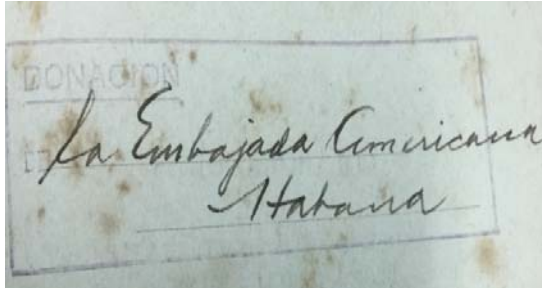 DONACION
La Embajada Americana
Habana